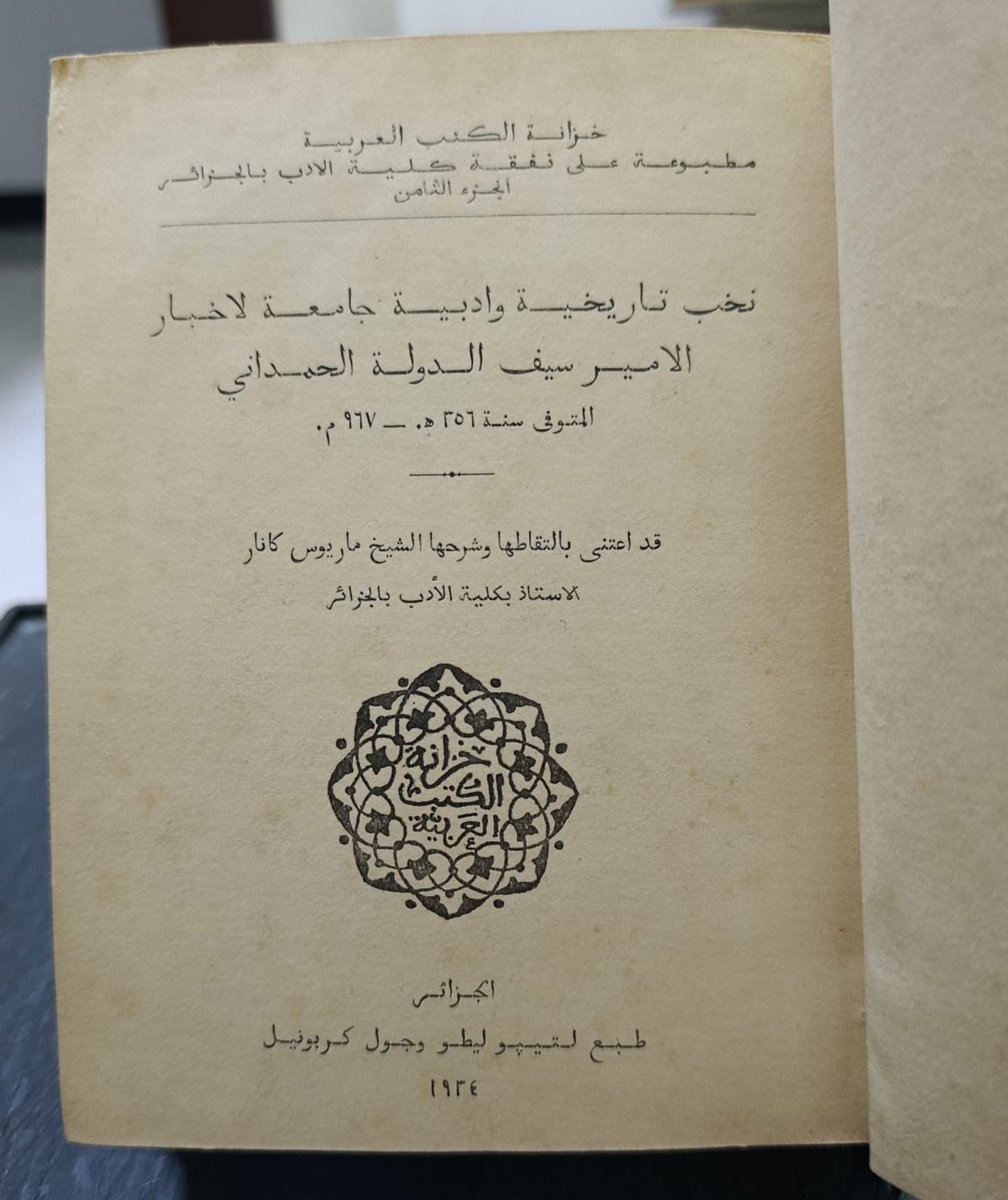 خزانة الكتب العربية
مطبوعة على نفقة كلية الادب بالجزائر
الجزء الثامن
نخب تاريخية وادبية جامعة لاخبار
الامير سيف الدولة الحمداني
المتوفى سنة ٣٥٦ ه. — ٩٦٧ م.
قد اعتنى بالتقاطها وشرحها الشيخ ماريوس كانار
الاستاذ بكلية الأدب بالجزائر
خزانة
الكتب
العربية
الجزائر
طبع لتيپو ليطو وجول كربونيل
١٩٣٤